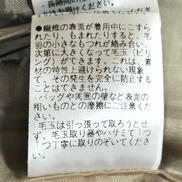 長時間の
け
●繊維の表面が着用中にこすら
れたり、もまれたりすると、毛
羽の小さなもつれが絡み合い、
次第に丸くなって毛玉(ピリ
ング)ができます。これは、素
材の特性上避けられない現象
で、その発生を完全に防止する
ことはできません。
バッグや周囲の壁など表面
の粗いものとの摩擦にご注意く
ださい。
毛玉は引っ張って取ろうとせ
ず、毛玉取り器やハサミで1つ
1つ丁寧に取りのぞいてください。